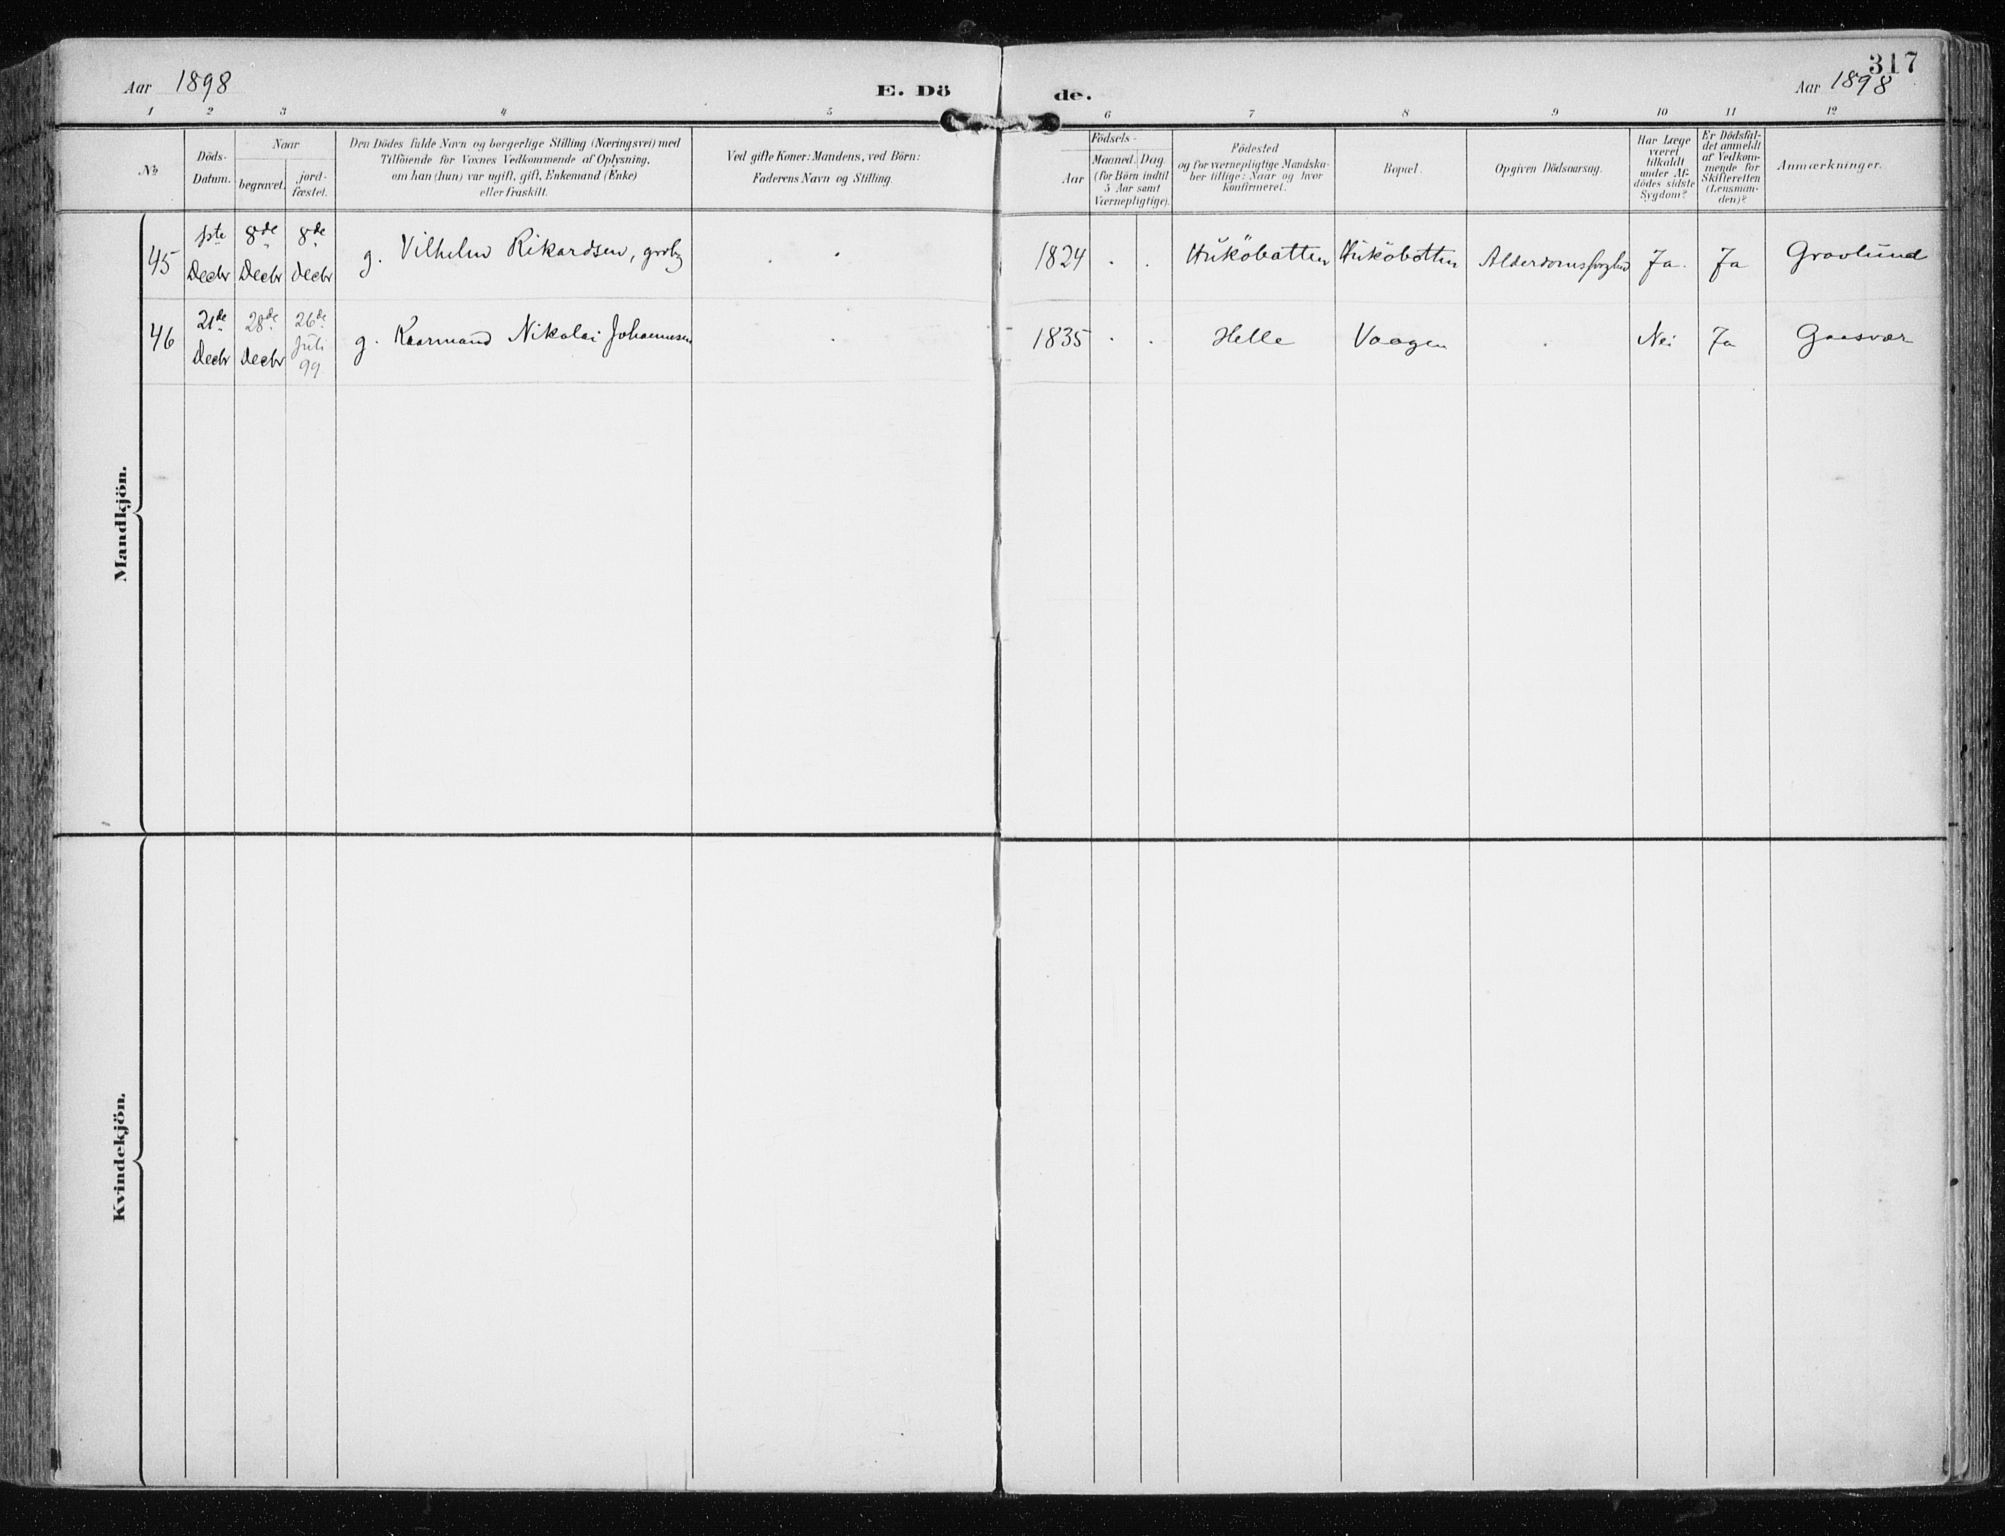 317
Aar 1898 E. Dö de. Aar 1898
1 2 3 4 5 6 7 8 9 10 11 12
No
Döds-
Datum.
Naar
begravet.
jord-
fæstet.
Den Dödes fulde Navn og borgerlige Stilling (Næringsvei) med
Tilföiende for Voxnes Vedkommende af Oplysning,
om han (hun) var ugift, gift, Enkemand (Enke)
eller fraskilt.
Ved gifte Koner: Mandens, ved Börn:
Faderens Navn og Stilling.
Födsels-
Aar
Maaned. Dag
(for Börn indtil
5 Aar samt
Værnepligtige).
Födested
og for værnepligtige Mandska-
ber tillige: Naar og hvor
konfirmeret.
Bopæl.
Opgiven Dödsaarsag.
Har Læge
været
tilkaldt
under Af-
dödes sidste
Sygdom?
Er Dödsfal-
det anmeldt
af Vedkom-
mende for
Skifteretten
(Lensman-
den)?
Anmærkninger.
Mandkjön.
45
1ste
Decbr
8de
Decbr
8de
Decbr
g. Vilhelm Rikardsen,
1824
Huköbatten
Huköbotten
Ja.
Ja
Gravlund
46
21de
Decbr
28de
Decbr
26de
Juli
99
g. Kaarmand Nikolai Johannesen
1835
Helle
Vaagen
Nei
Ja
Gaasvær
Kvindekjön.